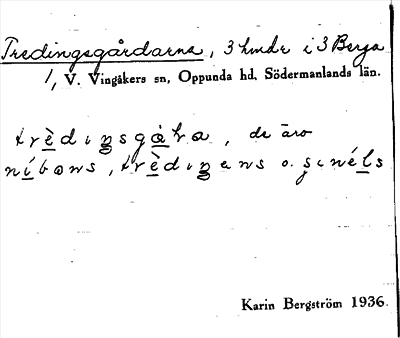 Tredingsgårdarna, 3 hmdr i 3 Berga
1, V. Vingåkers sn, Oppunda hd, Södermanlands län.
trèdiŋsgàka, de äro
níbɷns, trèdiŋens o. sinéls
Karin Bergström 1936.